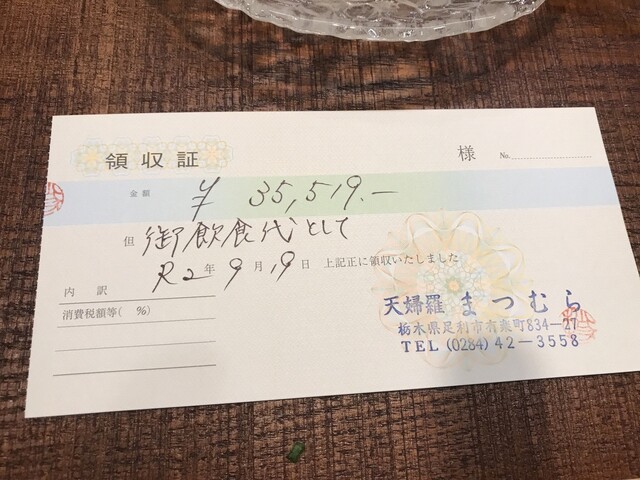 領収証
様 No.
金額 ¥ 35,519.-
但 御飲食代として
R2年9月19日 上記正に領収いたしました
内訳
消費税額等( %)
天婦羅 まつむら
栃木県足利市有楽町834-27
TEL (0284) 42-3558